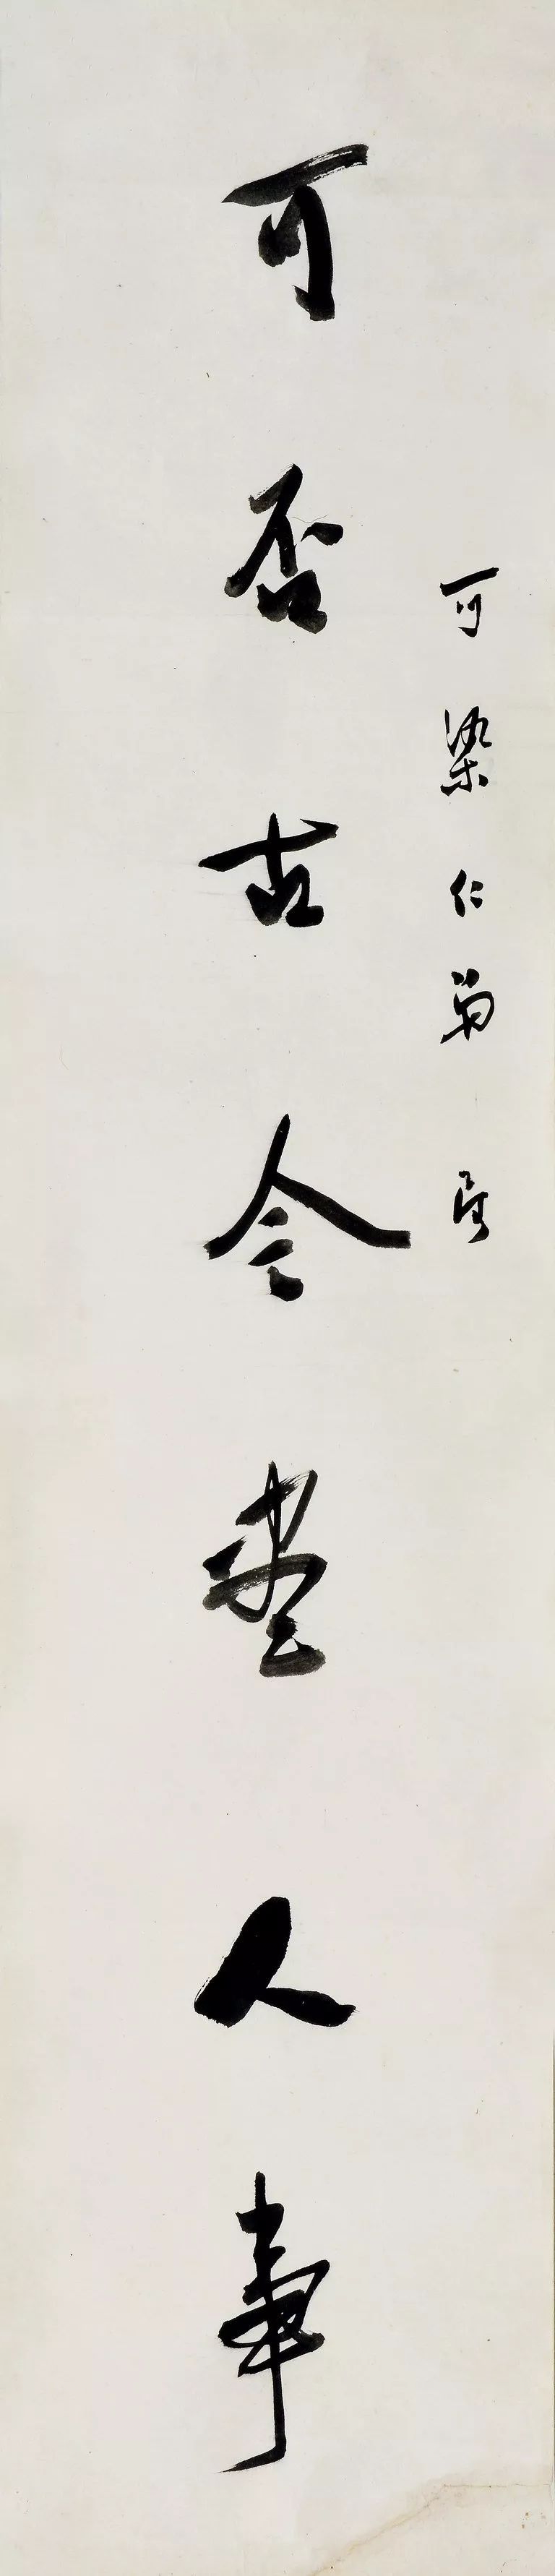 可染仁弟屬
可否古今盡人事